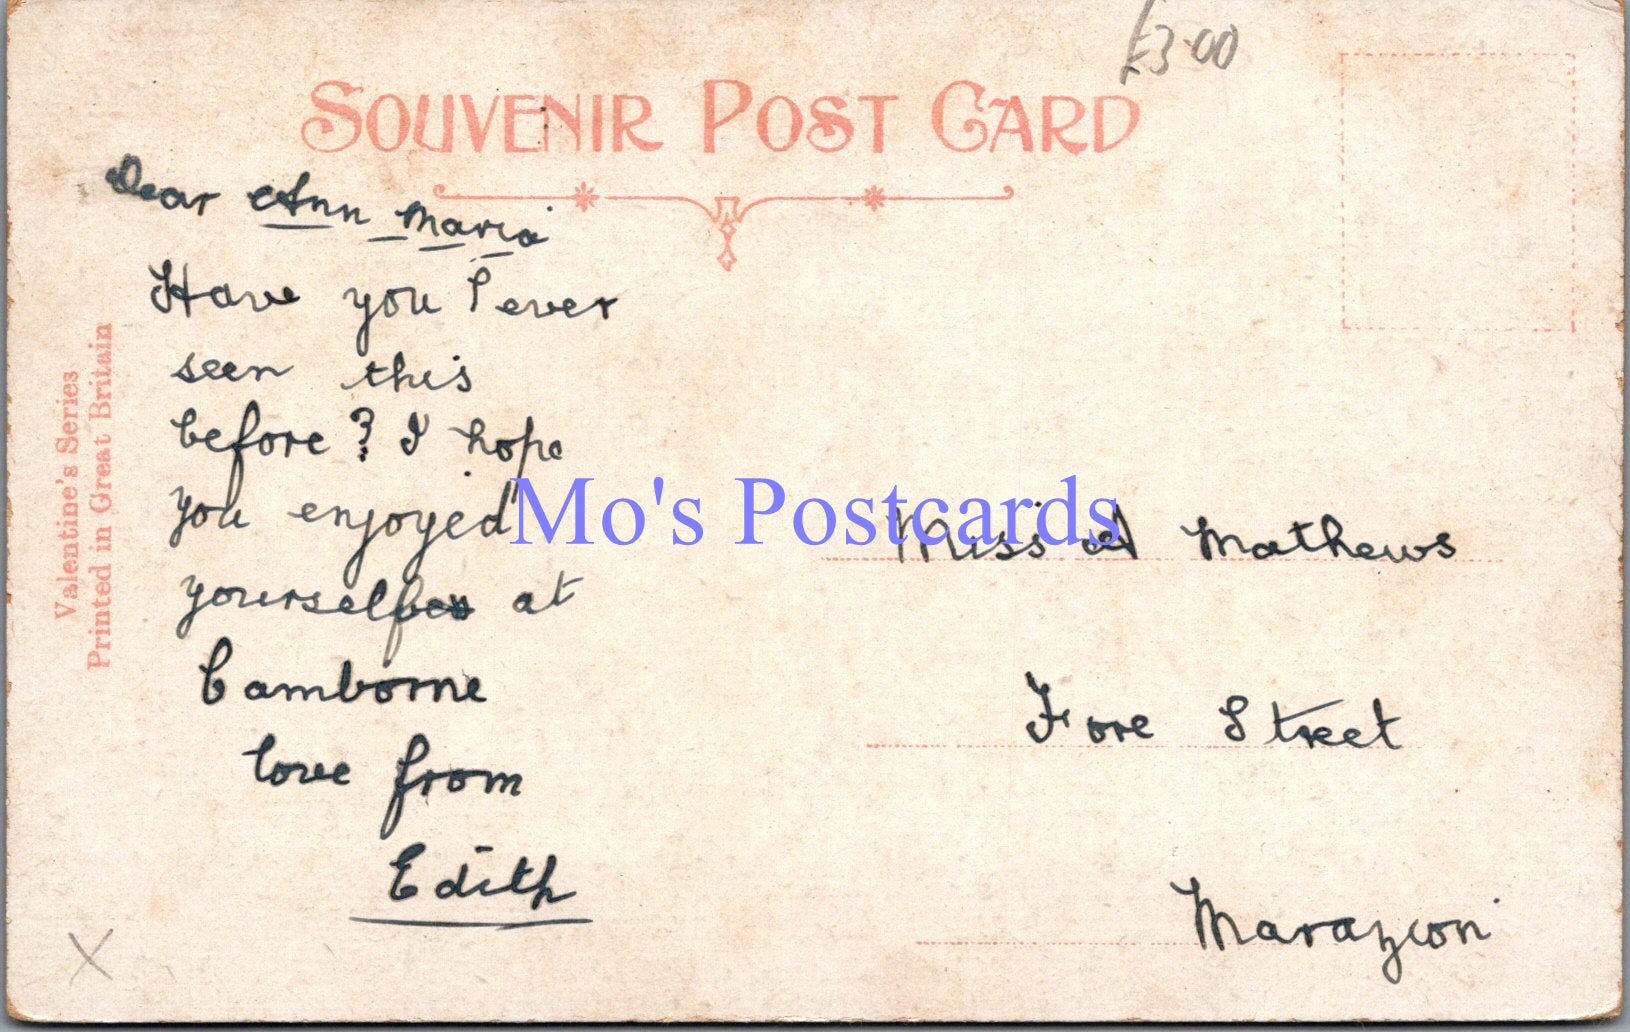 £3.00
SOUVENIR POST CARD
Dear Ann Maria
Have you ever
seen this
before? I hope
you enjoyed
at
Camborne
love from
Edith
Miss A Mathews
Fore Street
Marazion
Valentine's Series
Printed in Great Britain
Mo's Postcards
X